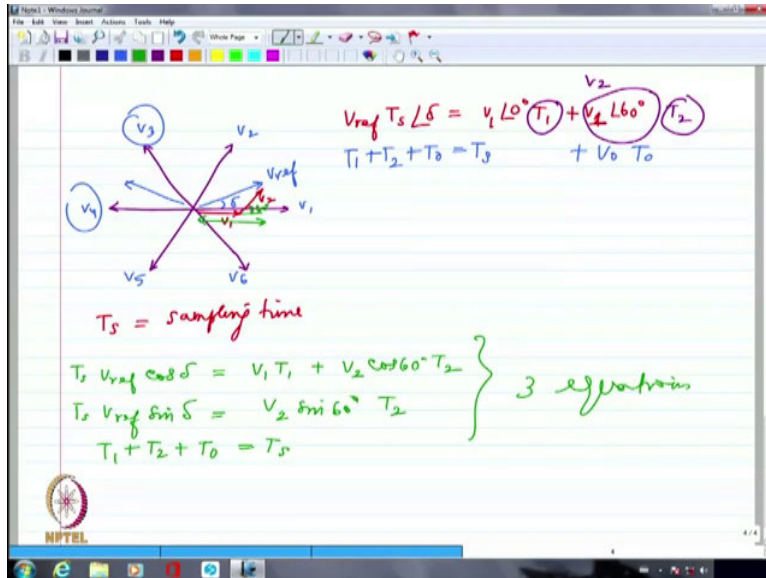 Note1 - Windows Journal
File Edit View Insert Actions Tools Help
Whole Page
B I
V2
Vref Ts ∠δ = V1 ∠0° T1 + V1 ∠60° T2
T1 + T2 + T0 = Ts + V0 T0
V3
V2
Vref
V4
δ
V1
V2
V1
V5
V6
Ts = sampling time
Ts Vref cos δ = V1 T1 + V2 cos 60° T2
Ts Vref sin δ = V2 sin 60° T2
T1 + T2 + T0 = Ts
3 equations
NPTEL
4/4